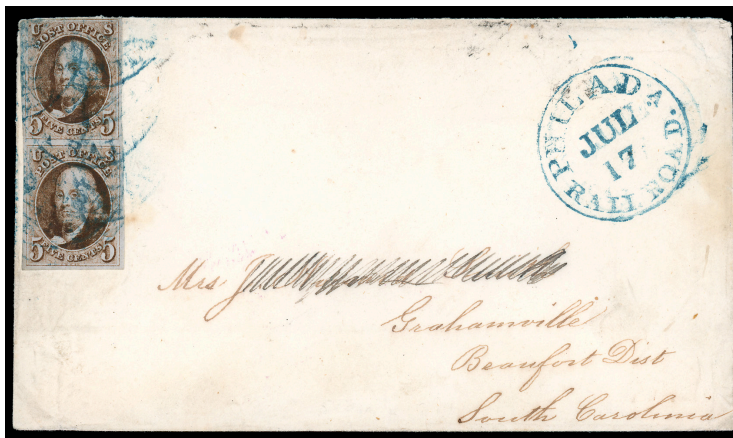 U S
POST OFFICE
5 FIVE CENTS 5
U S
POST OFFICE
5 FIVE CENTS 5
PHILADA. RAILROAD.
JUL
17
Mrs
Grahamville
Beaufort Dist
South Carolina